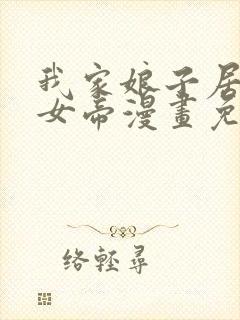 我家娘子居
女帝漫畫免
络輕尋